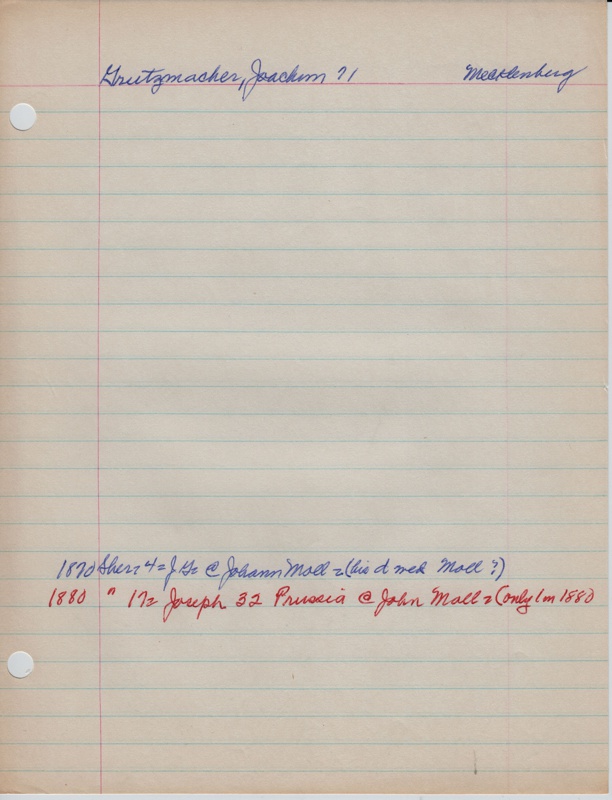 Grutzmacher, Joachim 71 Mecklenburg
1870 Sher: 4= J.G= @ Johann Moll = (his d wed Moll ?)
1880 " 17= Joseph 32 Prussia @ John Moll = (only 1 in 1880